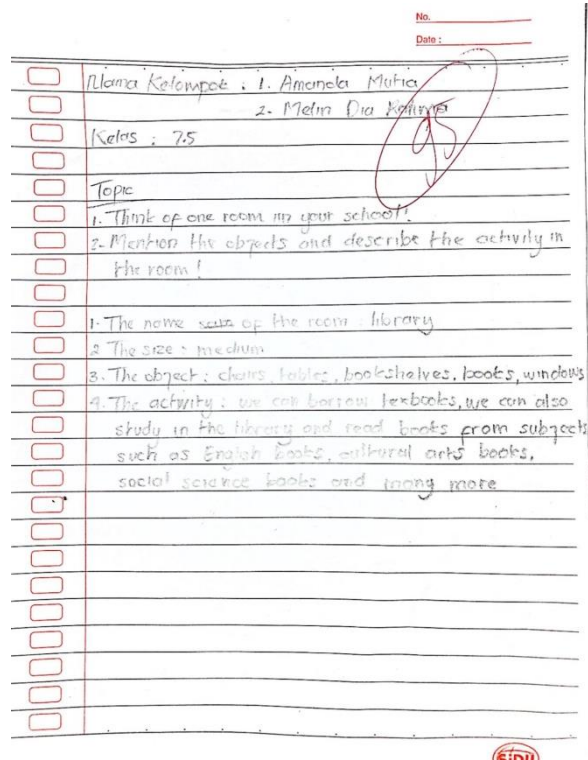 No.
Date :
Nama Kelompok : 1. Amanda Mutia
2. Melin Dia
95
Kelas : 7.5
Topic
1. Think of one room in your school!
2. Mention the objects and describe the activity in
the room !
1. The name of the room : library
2 The size : medium
3. The object : chairs, tables, bookshelves, books, windows
4. The activity : we can borrow texbooks, we can also
study in the library and read books from subjects
such as English books, cultural arts books,
social science books and many more
SiDU